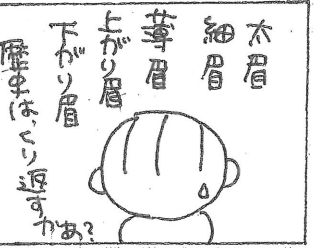 太眉
細眉
葦眉
上がり眉
下がり眉
歴史は、くり返すかぁ?